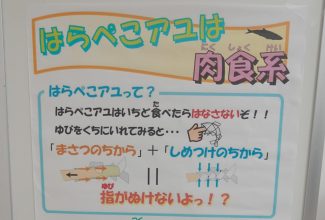 はらぺこアユは
にく しょく けい
肉食系
はらぺこアユって？
た
はらぺこアユはいちど食べたらはなさないぞ！！
ゆびをくちにいれてみると・・・
「まさつのちから」＋「しめつけのちから」
ゆび
指がぬけないよっ！？